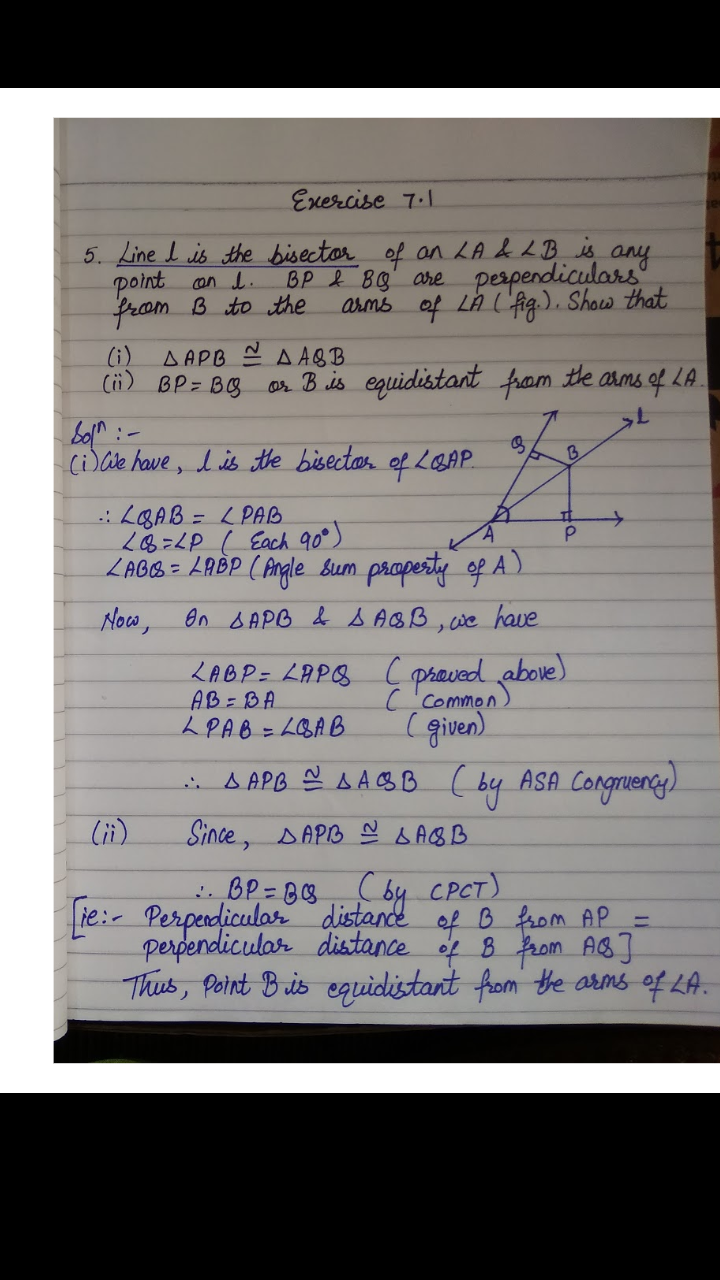 Exercise 7.1
5. Line l is the bisector of an ∠A & ∠B is any
point on l. BP & BQ are perpendiculars
from B to the arms of ∠A (fig.). Show that
(i) △APB ≅ △AQB
(ii) BP = BQ or B is equidistant from the arms of ∠A.
Solⁿ :-
(i) We have, l is the bisector of ∠QAP.
∴ ∠QAB = ∠PAB
∠Q = ∠P ( Each 90°)
∠ABQ = ∠ABP (Angle sum property of A)
l
Q
B
A
P
Now, In △APB & △AQB, we have
∠ABP = ∠APQ ( proved above)
AB = BA ( Common)
∠PAB = ∠QAB ( given)
∴ △APB ≅ △AQB ( by ASA Congruency)
(ii) Since, △APB ≅ △AQB
∴ BP = BQ ( by CPCT)
[ie:- Perpendicular distance of B from AP =
perpendicular distance of B from AQ]
Thus, Point B is equidistant from the arms of ∠A.